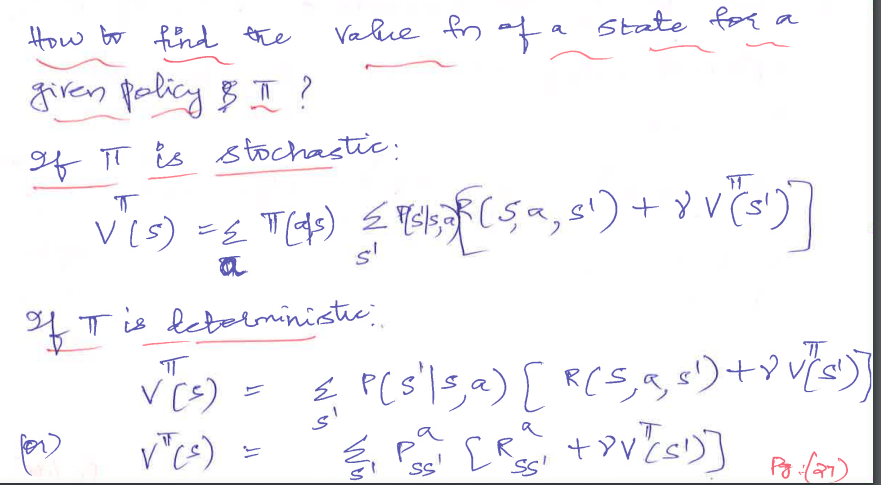 How to find the value fn of a state for a
given policy π ?
If π is stochastic:
V^π(s) = Σ_a π(a|s) Σ_s' P(s'|s,a)[R(s,a,s') + γ V^π(s')]
If π is deterministic:
V^π(s) = Σ_s' P(s'|s,a) [ R(s,a,s') + γ V^π(s')]
(or) V^π(s) = Σ_s' P^a_ss' [R^a_ss' + γV^π(s')]
Pg:(27)